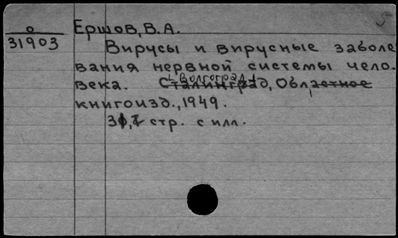 о
31903
Ершов, В.А.
Вирусы и вирусные заболе
вания нервной системы чело.
века. Сталинград, Областное
Волгоград
книгоизд., 1949.
стр. с илл.